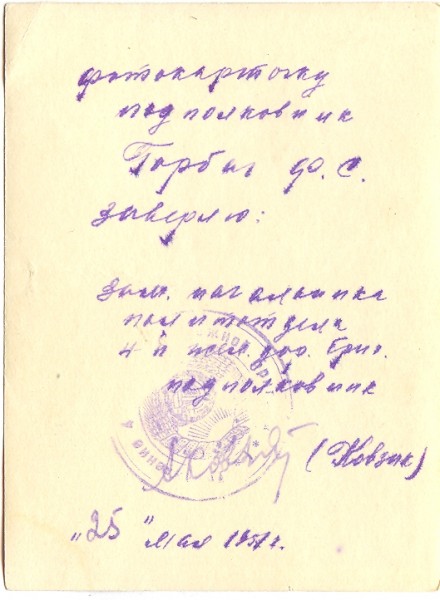 фотокарточку
подполковник
Горбач Ф. С.
заверяю:
зам. начальника
политотдела
4 й жел. дор. бриг.
подполковник
(Ковзик)
"25" мая 1951 г.